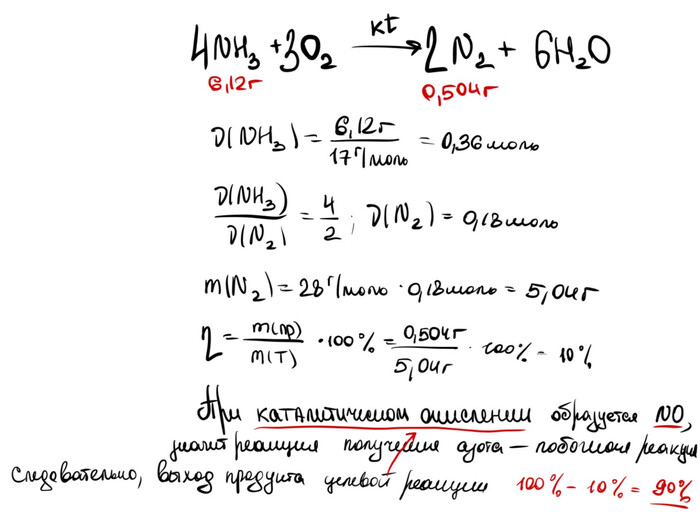 4NH₃ + 3O₂ kt→ 2N₂ + 6H₂O
6,12г 0,504г
ν(NH₃) = 6,12г / 17г/моль = 0,36 моль
ν(NH₃) / ν(N₂) = 4/2 ; ν(N₂) = 0,18 моль
m(N₂) = 28г/моль · 0,18 моль = 5,04г
η = m(пр) / m(т) · 100% = 0,504г / 5,04г · 100% = 10%
При каталитическом окислении образуется NO,
значит реакция получения азота – побочная реакция
следовательно, выход продукта целевой реакции 100% – 10% = 90%